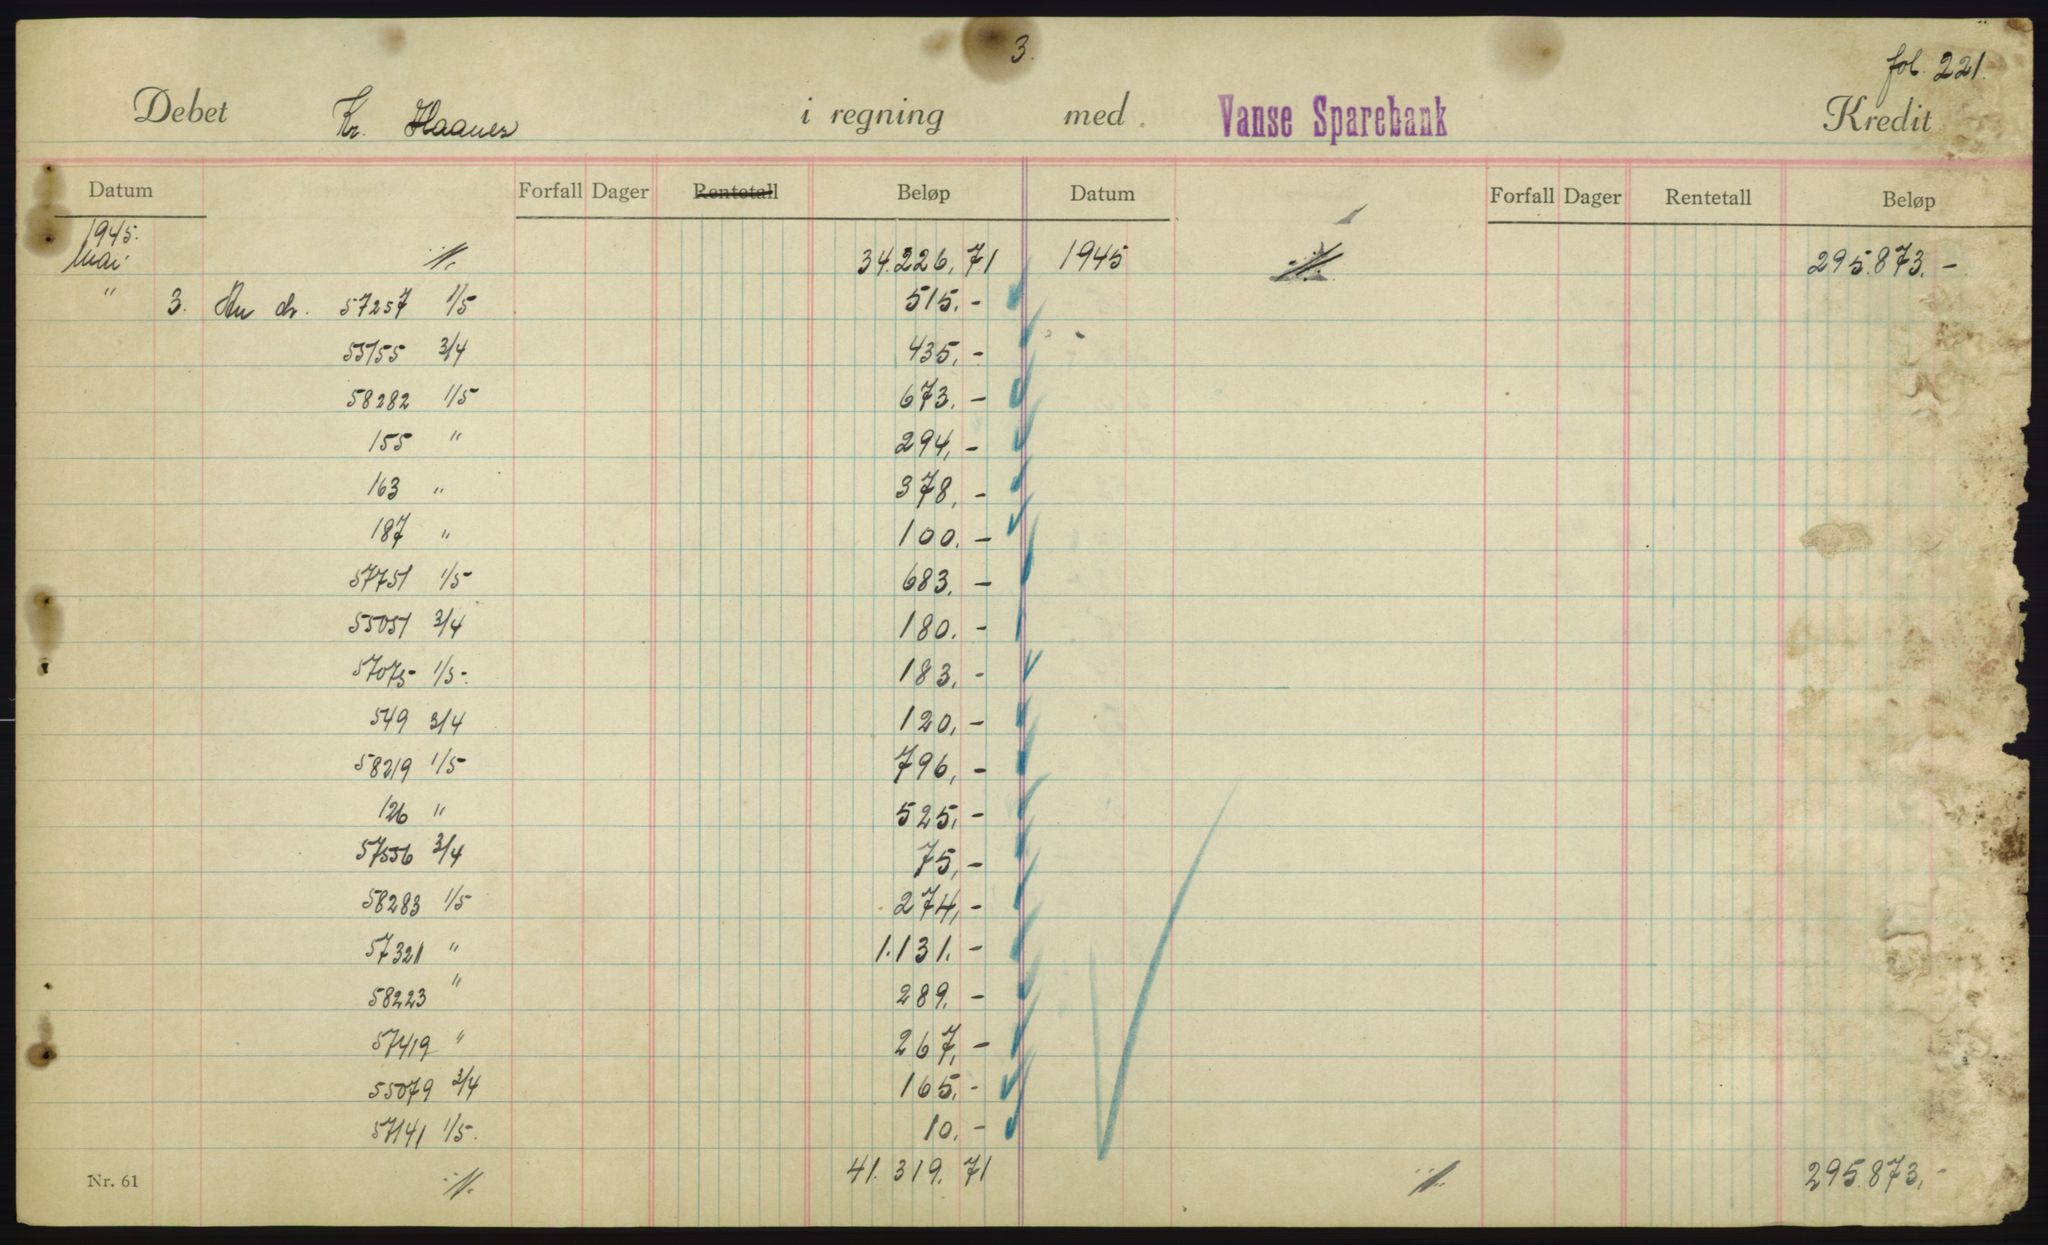 3.
fol. 221.
Debet Kr. Haanes i regning med Vanse Sparebank Kredit
Datum Forfall Dager Rentetall Beløp Datum Forfall Dager Rentetall Beløp
1945.
Mai ·//. 34.226,71 1945 ·//. 295.873.-
" 3. An ch. 57257 1/5 515.-
55155 3/4 435,-
58282 1/5 673.-
155 " 294,-
163 " 378,-
187 " 100.-
57751 1/5 683.-
55051 3/4 180.-
57075 1/5. 183.-
549 3/4 120,-
58219 1/5 796,-
126 " 525,-
57556 3/4 75,-
58283 1/5 274,-
57321 " 1.131.-
58223 " 289.-
57419 " 267,-
55079 3/4 165,-
57141 1/5. 10.-
Nr. 61 ·//. 41.319.71 ·//. 295.873,-